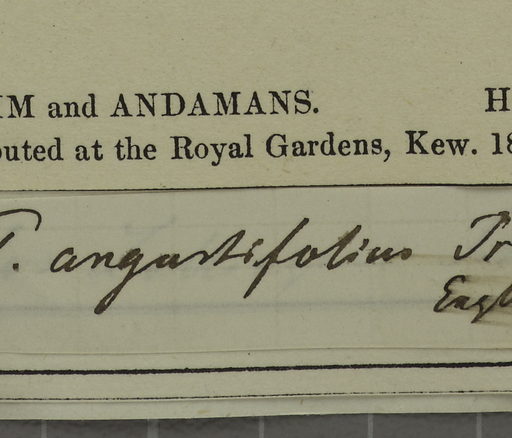 IM and ANDAMANS. H
outed at the Royal Gardens, Kew. 18
T. angustifolius Pr
Engl